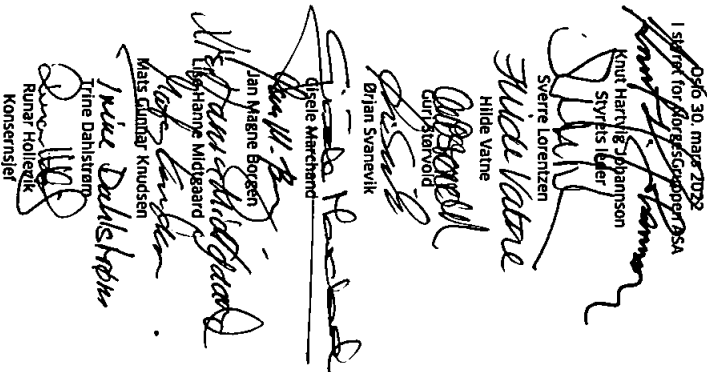 Oslo 30. mars 2022
I styret for NorgesGruppen ASA
Knut Hartvig Johannson
Styrets leder
Sverre Lorentzen
Hilde Vatne
Hilde Vatne
Guri Størvold
Ørjan Svanevik
Gisele Marchand
Gisele Marchand
Jan Magne Borgen
Lise Hanne Midtgaard
Mats Gunnar Knudsen
Trine Dahlstrøm
Trine Dahlstrøm
Runar Hollevik
Konsernsjef